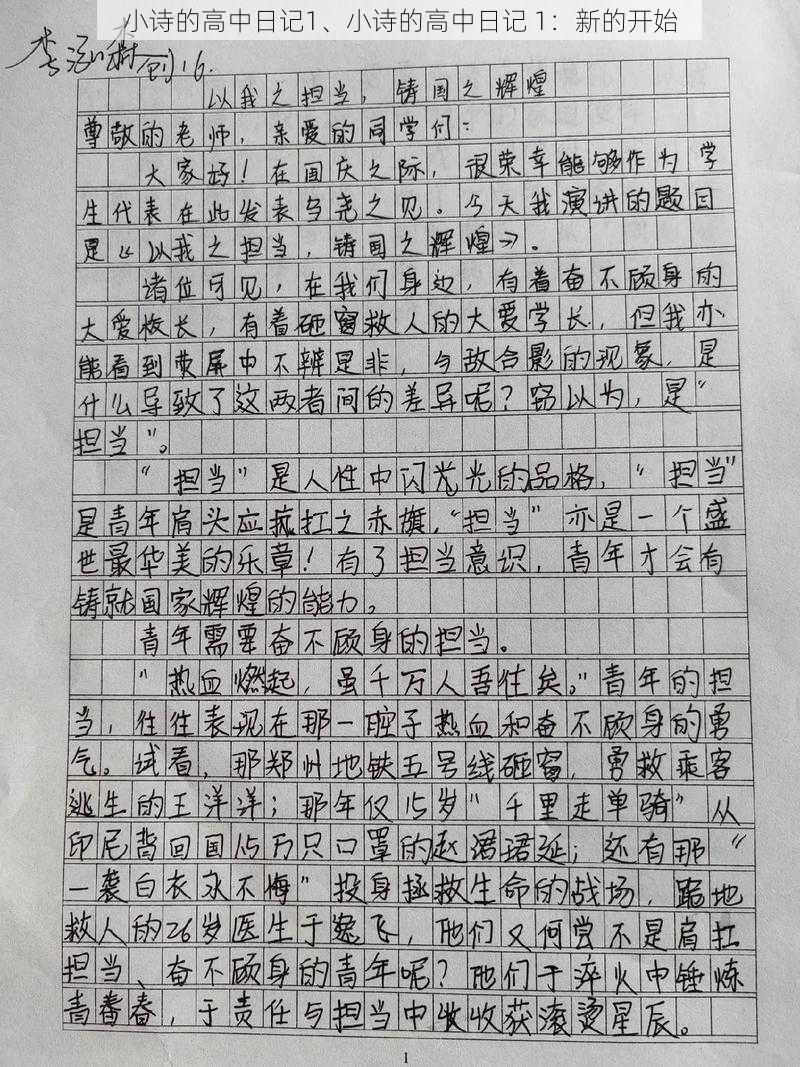 小诗的高中日记1、小诗的高中日记 1：新的开始
创16.
以我之担当，铸国之辉煌
尊敬的老师，亲爱的同学们：
大家好！在国庆之际，很荣幸能够作为学
生代表在此发表刍荛之见。今天我演讲的题目
是《以我之担当，铸国之辉煌》。
诸位可见，在我们身边，有着奋不顾身的
大爱校长，有着砸窗救人的大爱学长，但我亦
能看到荧屏中不辨是非，与敌合影的现象，是
什么导致了这两者间的差异呢？窃以为，是“
担当”。
“担当”是人性中闪发光的品格，“担当”
是青年肩头应扛之赤旗，“担当”亦是一个盛
世最华美的乐章！有了担当意识，青年才会有
铸就国家辉煌的能力。
青年需要奋不顾身的担当。
“热血燃起，虽千万人吾往矣。”青年的担
当，往往表现在那一腔子热血和奋不顾身的勇
气。试看，那郑州地铁五号线砸窗，勇救乘客
逃生的王洋洋；那年仅15岁“千里走单骑”从
印尼背回国15万只口罩的赵珺延；还有那“
一袭白衣永不悔”投身拯救生命的战场，跪地
救人的26岁医生于逸飞，他们又何尝不是肩扛
担当、奋不顾身的青年呢？他们于淬火中锤炼
青春，于责任与担当中收获滚烫星辰。
1